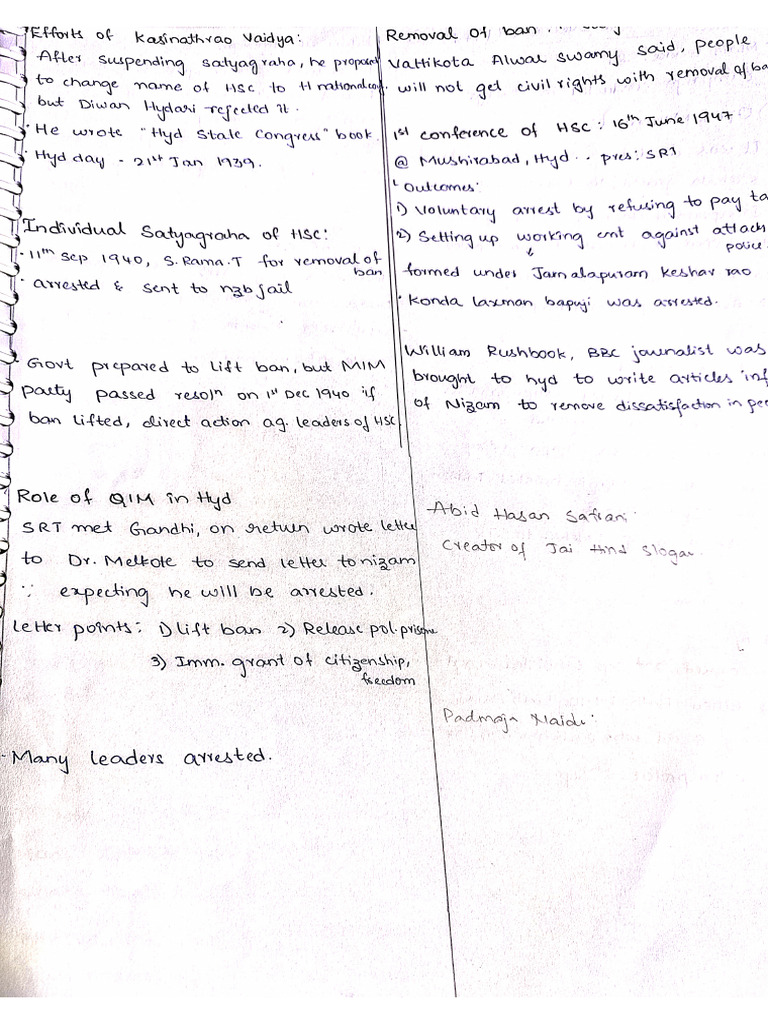 Efforts of Kasinathrao Vaidya:
After suspending satyagraha, he proposed
to change name of HSC to H national conf.
but Diwan Hydari rejected it.
· He wrote "Hyd State Congress" book.
· Hyd day - 21st Jan 1939.
Individual Satyagraha of HSC:
· 11th Sep 1940, S. Rama. T for removal of
ban
· arrested & sent to nzb jail
· Govt prepared to lift ban, but MIM
party passed resoln on 1st Dec 1940 if
ban lifted, direct action ag. leaders of HSC
Role of QIM in Hyd
SRT met Gandhi, on return wrote letter
to Dr. Melkote to send letter to nizam
∵ expecting he will be arrested.
letter points: 1) lift ban 2) Release pol. prisone
3) Imm. grant of citizenship,
freedom
· Many leaders arrested.
Removal of ban :
Vattikota Alwal swamy said, people
will not get civil rights with removal of ba
1st conference of HSC : 16th June 1947
@ Mushirabad, Hyd .. pres: SRT
Outcomes:
1) Voluntary arrest by refusing to pay ta
2) Setting up working cmt against attack
police
↓
formed under Jamalapuram keshav rao
· Konda laxman bapuji was arrested.
William Rushbook, BBC journalist was
brought to hyd to write articles inf
of Nizam to remove dissatisfaction in peo
Abid Hasan Safrani:
Creator of Jai Hind Slogan.
Padmaja Naidu: